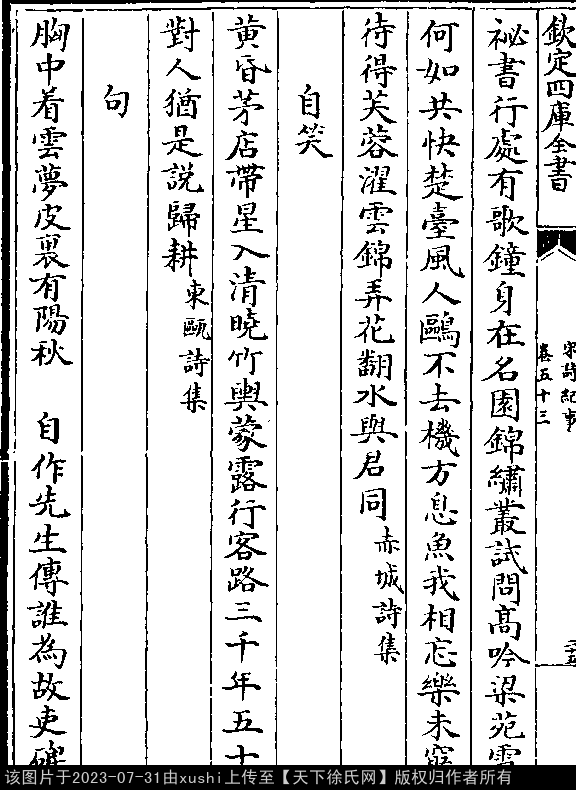 欽定四庫全書
宋詩紀事
卷五十三
祕書行處有歌鐘身在名園錦繡叢試問髙吟梁苑雪
何如共快楚臺風人鷗不去機方息魚我相忘樂未窮
待得芙蓉濯雲錦弄花翻水與君同赤城詩集
自笑
黄昏茅店帶星入清曉竹輿蒙露行客路三千年五十
對人猶是説歸耕東甌詩集
句
胸中着雲夢皮裏有陽秋 自作先生傳誰為故吏碑
该图片于2023-07-31由xushi上传至【天下徐氏网】版权归作者所有